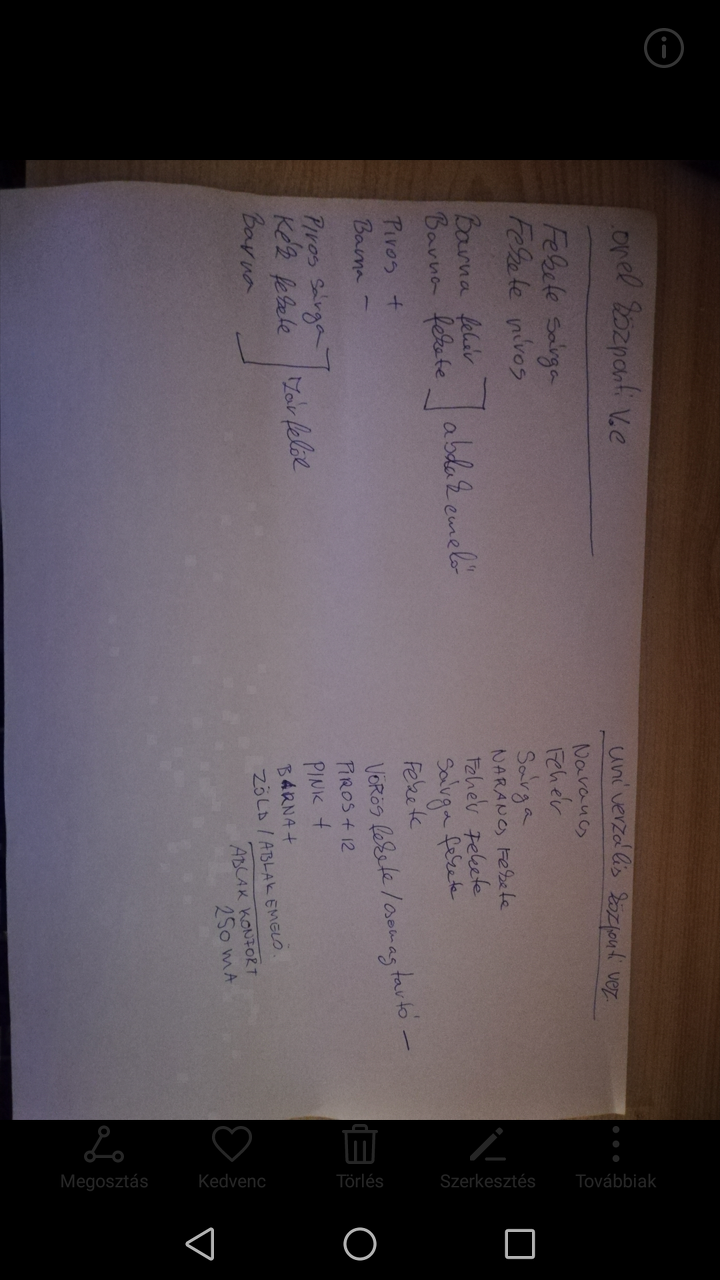 opel központi v.e
Fekete sárga
Fekete piros
Barna fehér
Barna fekete
ablakemelő
Piros +
Barna -
Piros sárga
Kék fekete
Barna
Zárfelök
univerzális központi vez.
Narancs
Fehér
Sárga
NARANCS FEKETE
Fehér Fekete
Sárga fekete
Fekete
VÖRÖS fekete / csomagtartó -
PIROS + 12
PINK +
BARNA +
ZÖLD / ABLAKEMELŐ.
ABLAK KONFORT
250 mA
Megosztás
Kedvenc
Törlés
Szerkesztés
Továbbiak